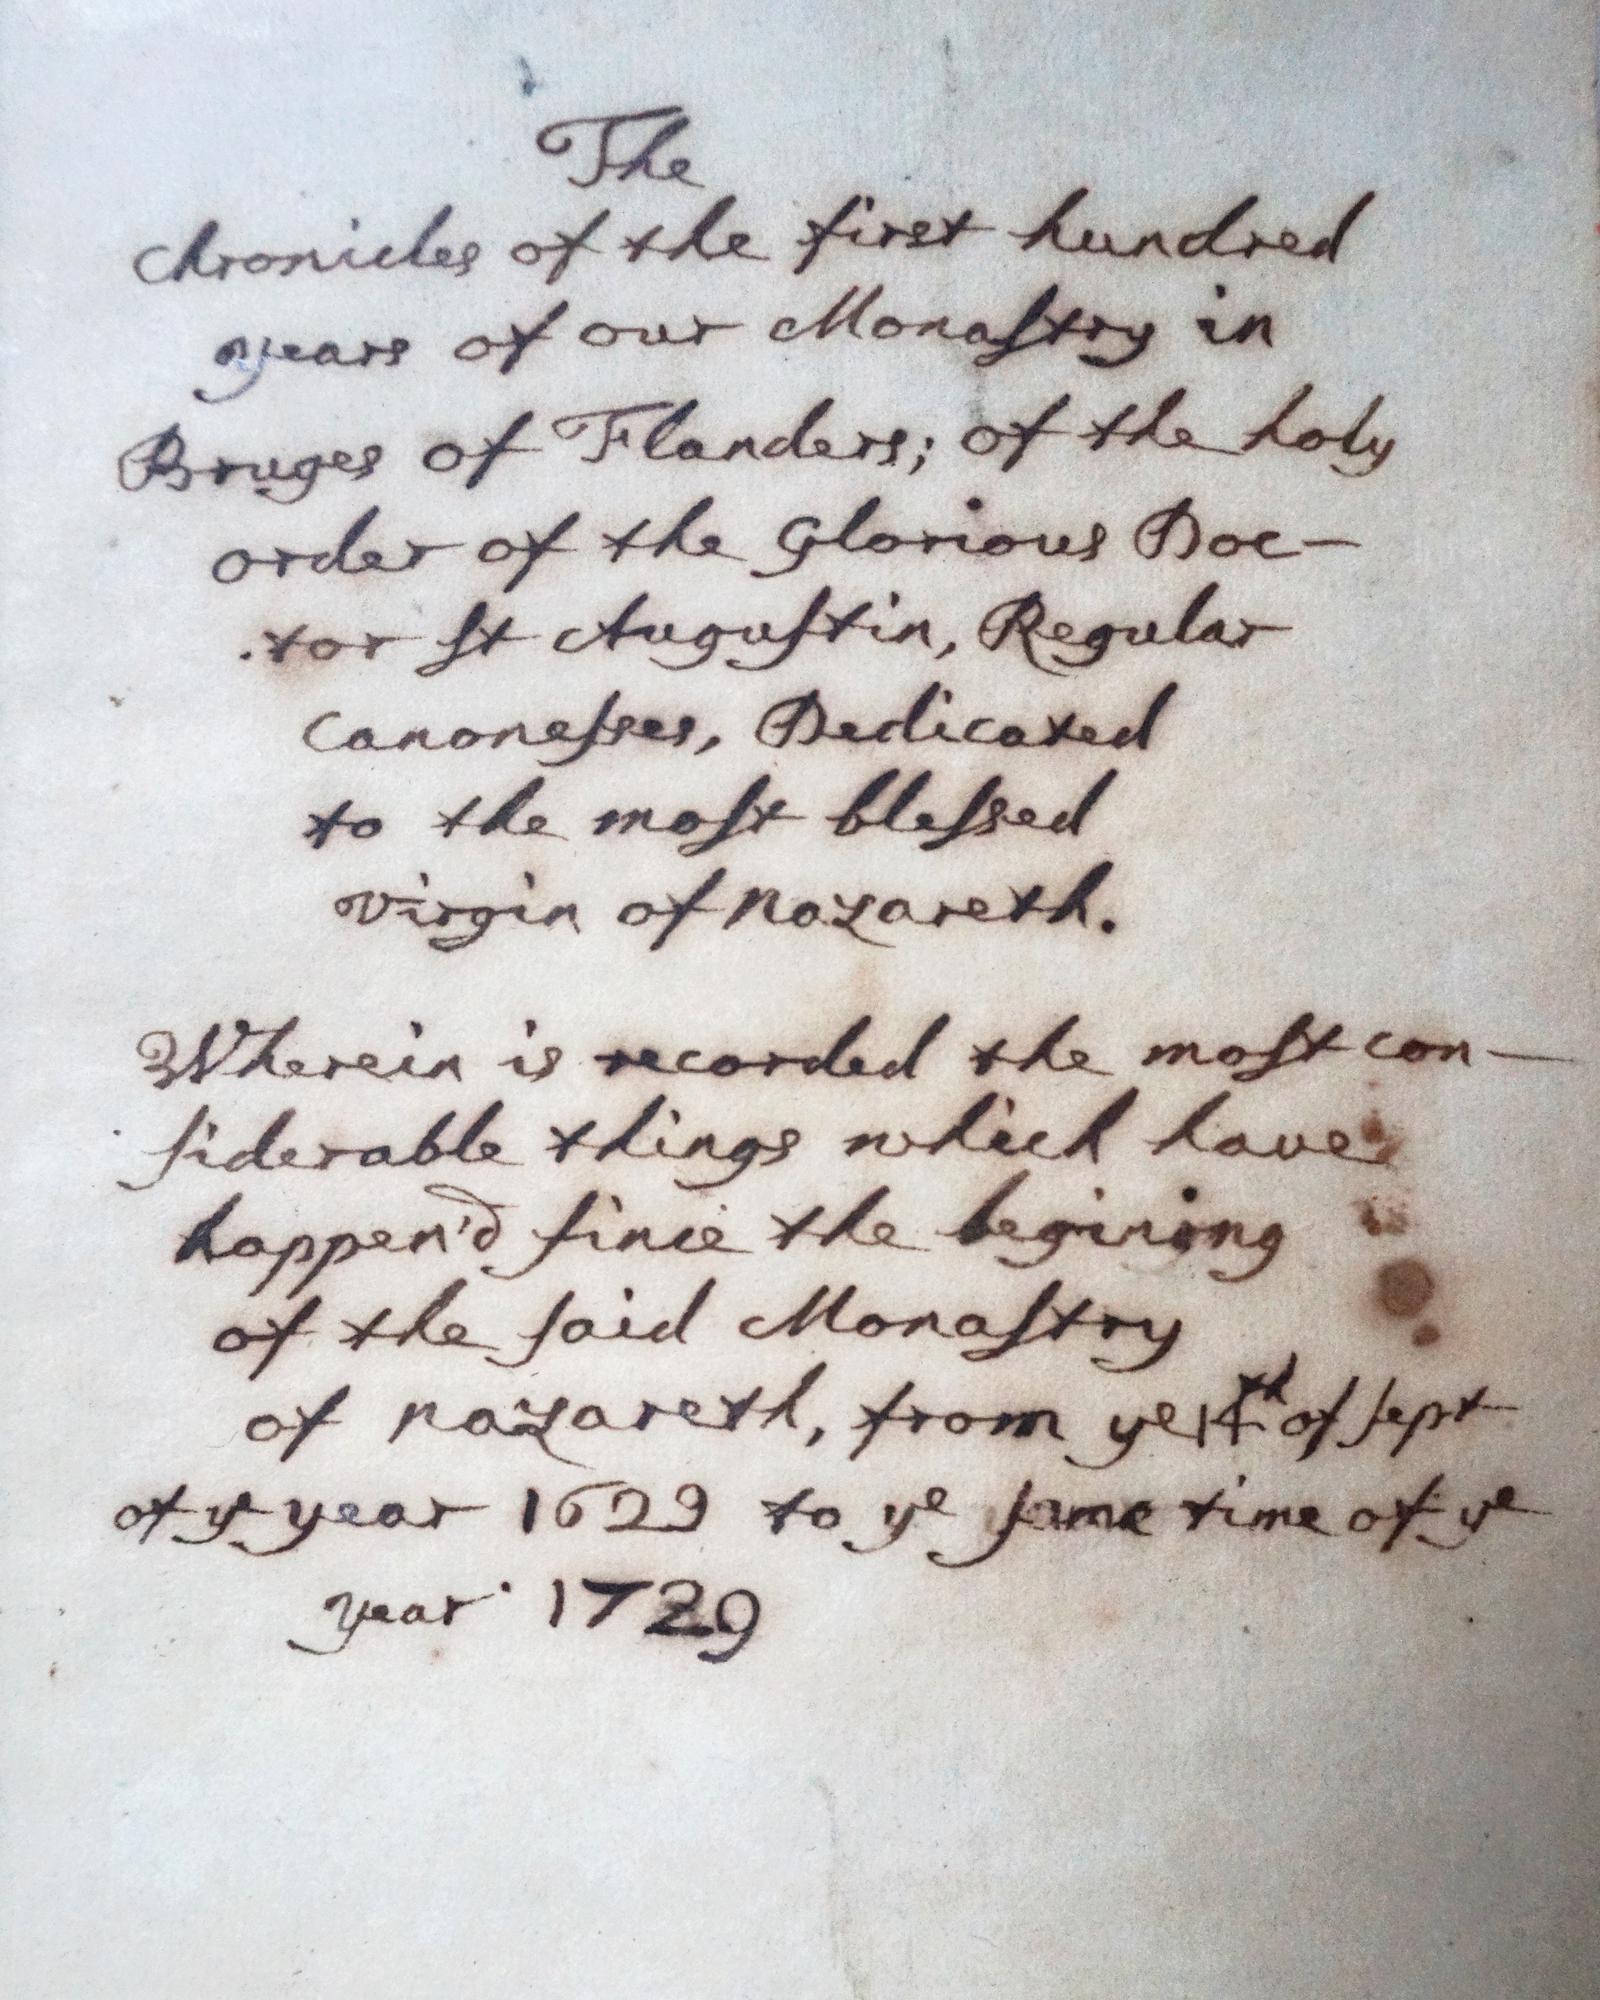 The
chronicles of the first hundred
years of our Monaſtry in
Bruges of Flanders; of the holy
order of the Glorious Doc-
.tor ſt Auguſtin, Regular
Canoneſses, Dedicated
to the moſt bleſsed
virgin of Nazareth.
Wherein is recorded the moſt con-
ſiderable things which have
happen'd ſince the begining
of the ſaid Monaſtry
of Nazareth, from ye 14th of ſept
of ye year 1629 to ye ſame time of ye
year 1729